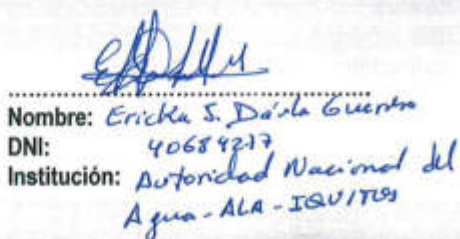 Nombre: Ericka S. Dávila Guerra
DNI: 40684237
Institución: Autoridad Nacional del
Agua - ALA - IQUITOS